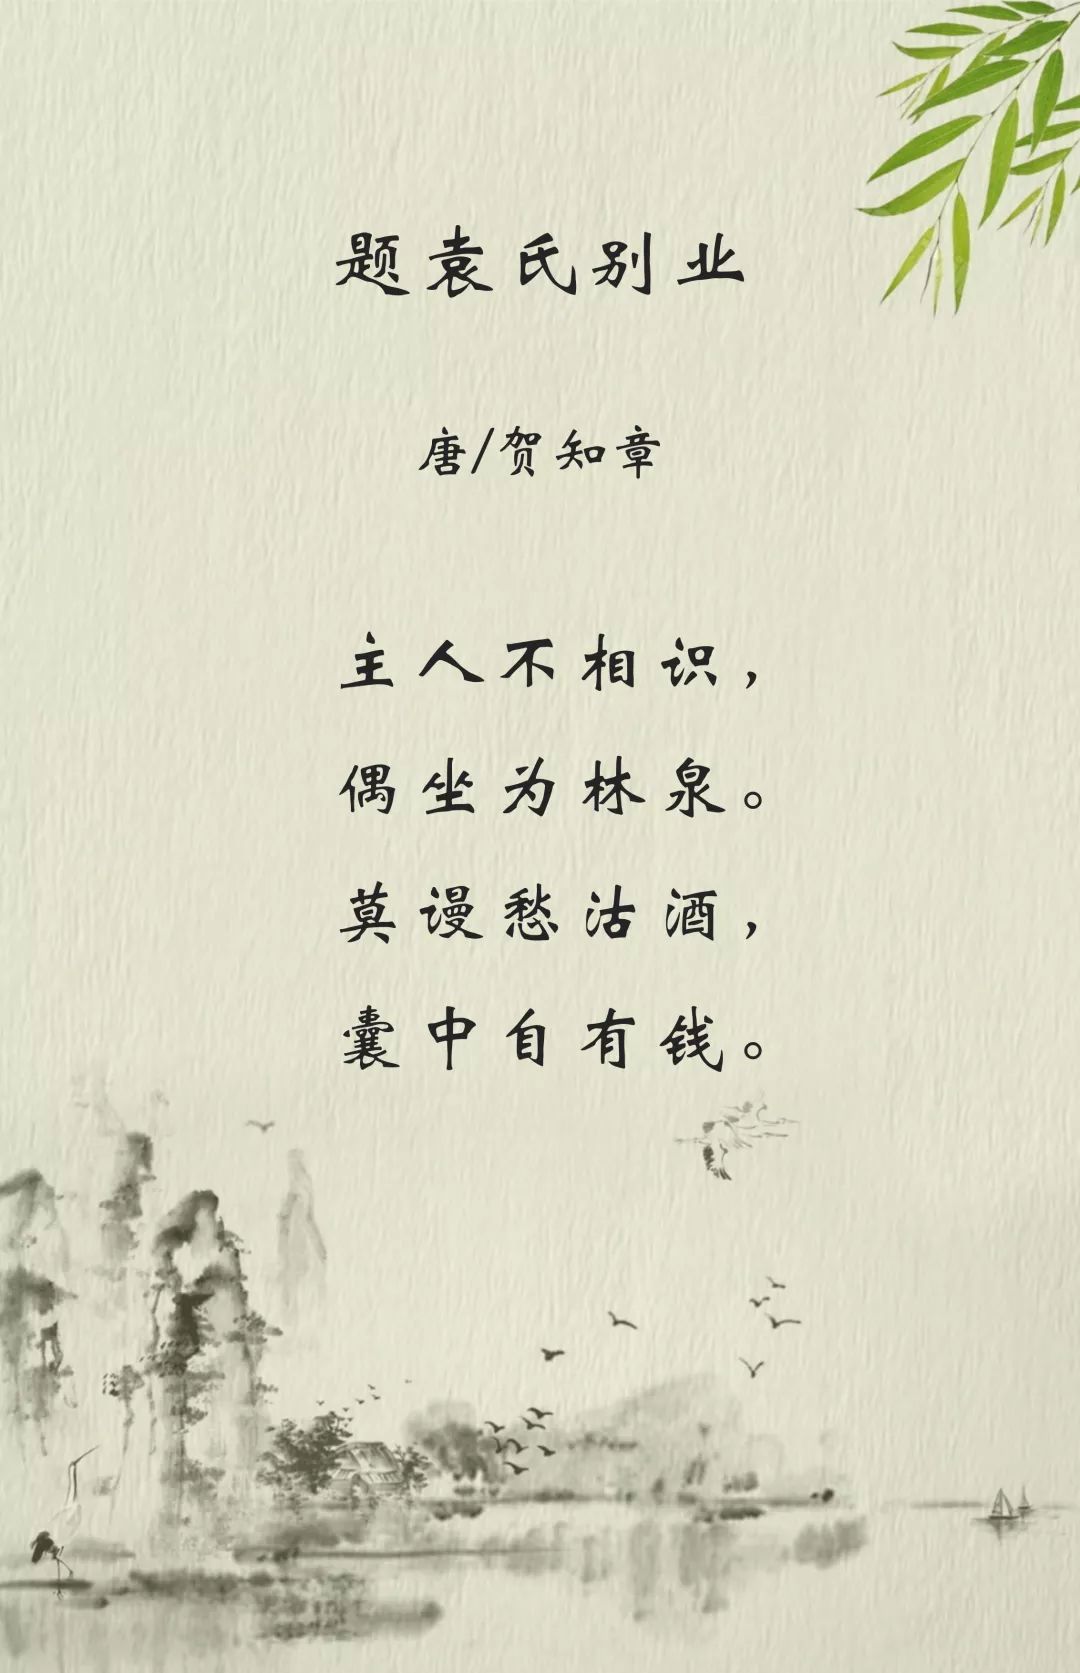 题袁氏别业
唐/贺知章
主人不相识，
偶坐为林泉。
莫谩愁沽酒，
囊中自有钱。